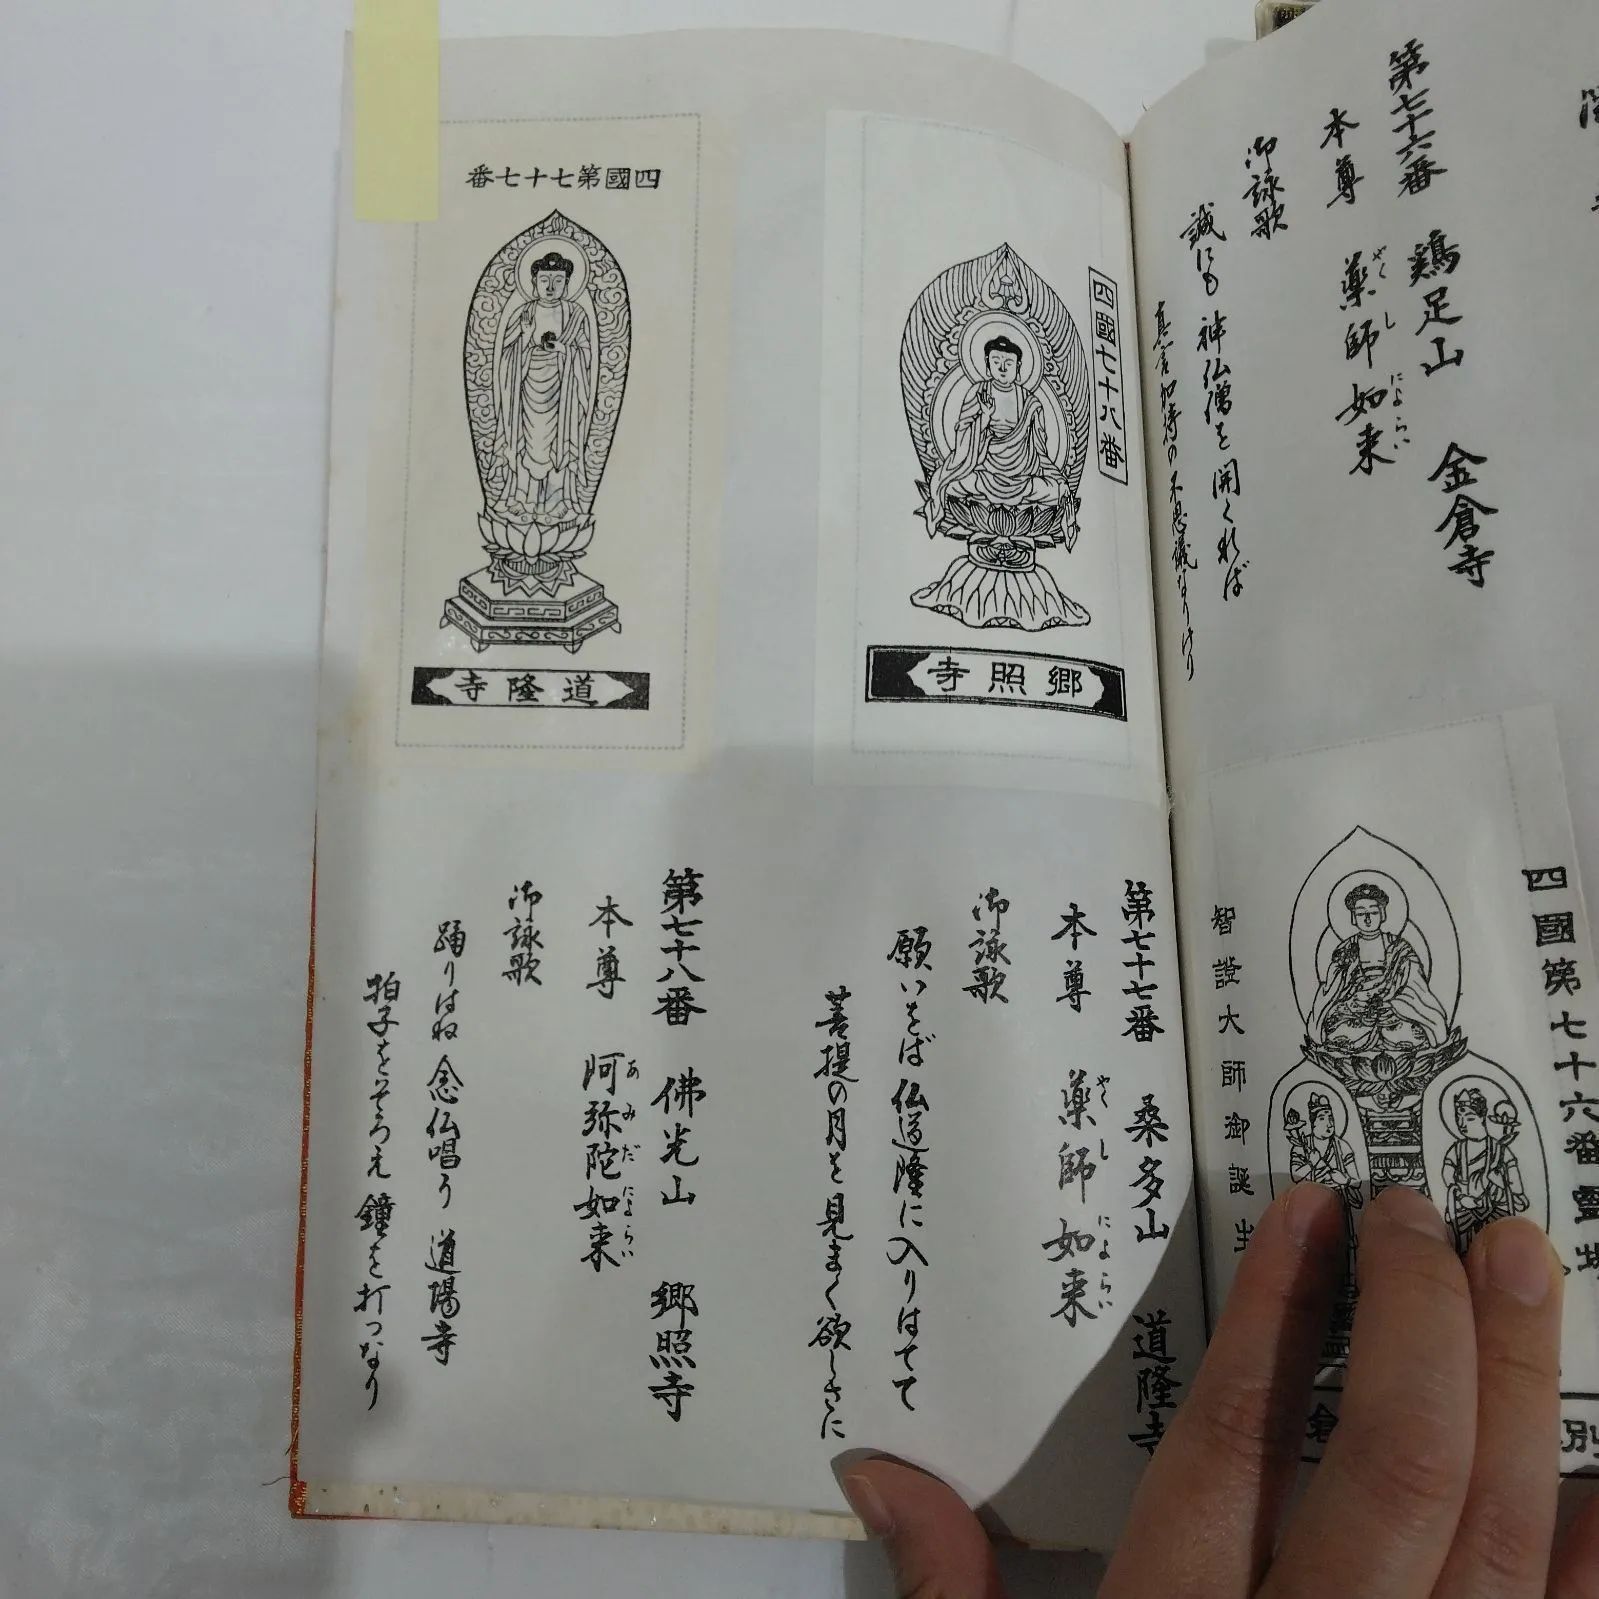 第七十六番 鶏足山 金倉寺
本尊 薬師如来
やくし にょらい
御詠歌
誠にも 神仏僧を 開くれば
真言加持の 不思議なりけり
四國第七十六番霊場
智證大師御誕生
別
倉
四國七十八番
郷照寺
四國第七十七番
道隆寺
第七十七番 桑多山 道隆寺
本尊 薬師如来
やくし にょらい
御詠歌
願いをば 仏道隆に 入りはてて
菩提の月を 見まく欲しさに
第七十八番 佛光山 郷照寺
本尊 阿弥陀如来
あみだ にょらい
御詠歌
踊りはね 念仏唱う 道場寺
拍子をそろえ 鐘を打つなり